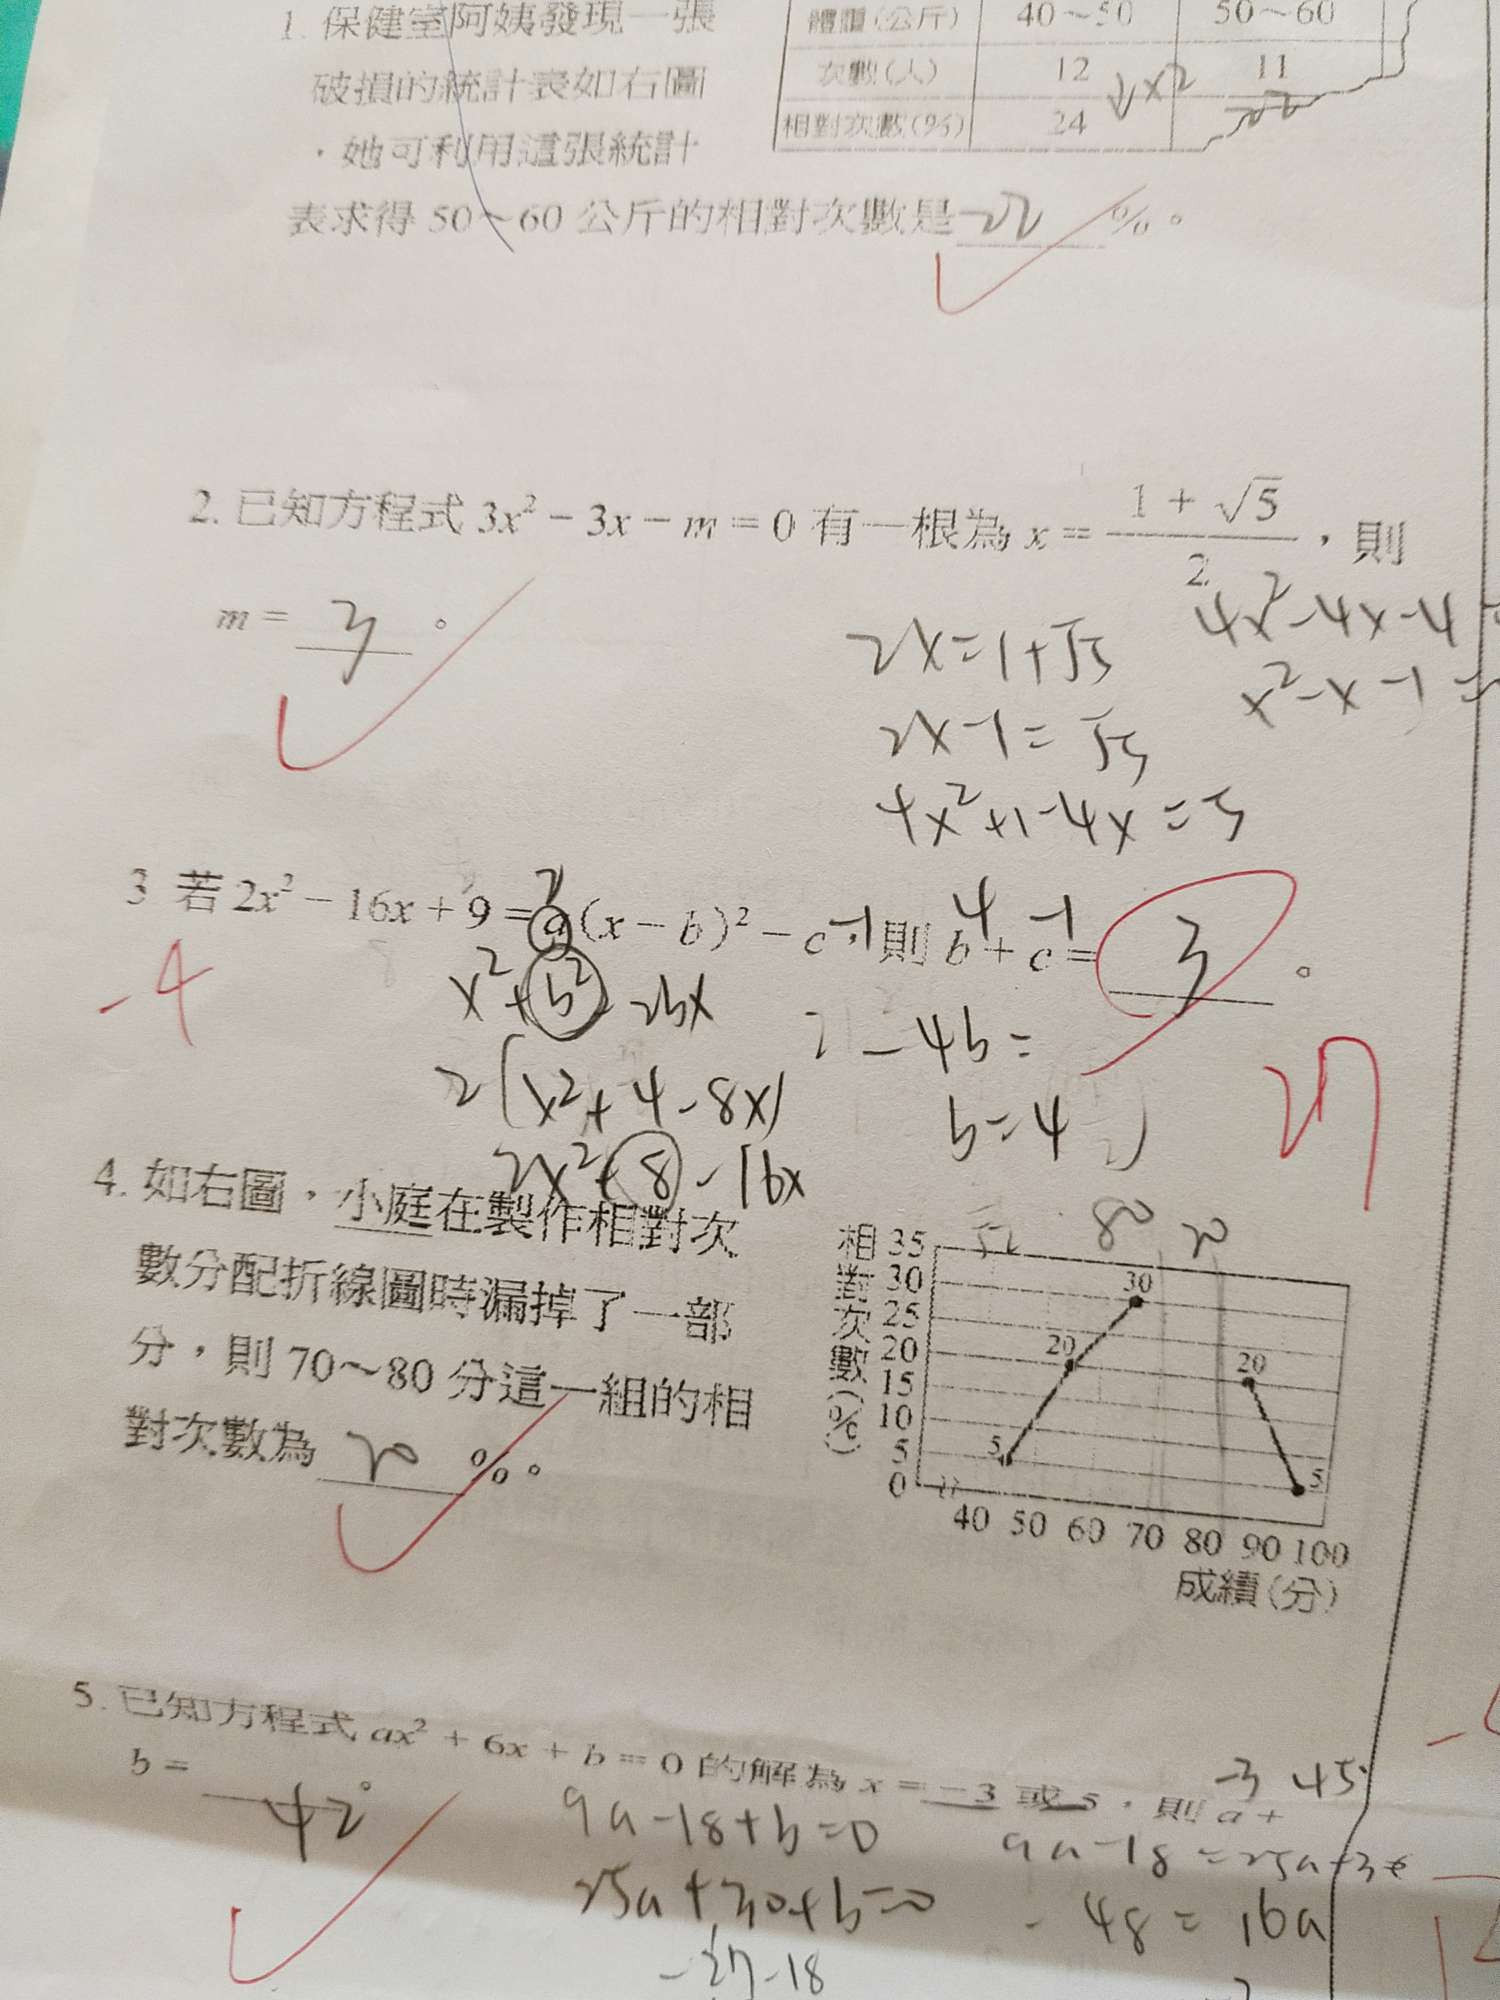 1. 保健室阿姨發現一張
破損的統計表如右圖
，她可利用這張統計
表求得 50～60 公斤的相對次數是 22 %。
體重(公斤) 40～50 50～60
次數(人) 12 11
相對次數(%) 24 ×2 22
2. 已知方程式 3x² − 3x − m = 0 有一根為 x = (1 + √5)/2，則
m = 3 。
2x=1+√5
2x-1=√5
4x²+1-4x=5
4x²-4x-4
x²-x-1=
3 若 2x² − 16x + 9 = a(x − b)² − c，則 b + c = 3 。
2
-1
4 -1
-4
x²+b²-2bx
2(x²+4-8x)
2x²+8-16x
-4b=
b=4
27
4. 如右圖，小庭在製作相對次
數分配折線圖時漏掉了一部
分，則 70～80 分這一組的相
對次數為 20 %。
80 20
相對次數(%)
35
30
25
20
15
10
5
0
5 20 30 20 5
40 50 60 70 80 90 100
成績(分)
5. 已知方程式 ax² + 6x + b = 0 的解為 x = −3 或 5，則 a +
b = 42 。
-3 45
9a-18+b=0
25a+30+b=0
-48=16a
-27-18